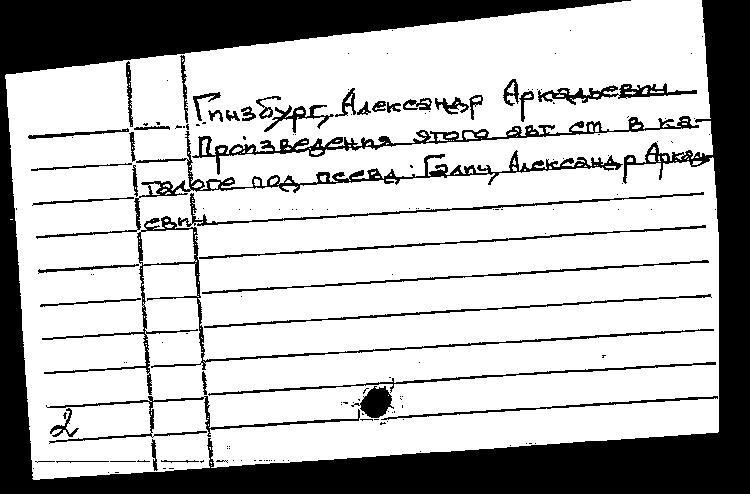 Гинзбург, Александр Аркадьевич.
Произведения этого авт. см. в ка-
талоге под псевд.: Галич, Александр Аркадь-
евич.
2